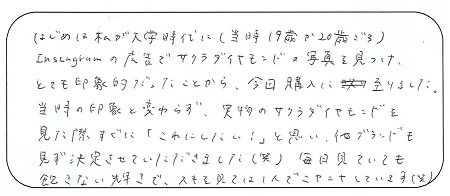 はじめは私が大学時代に(当時19歳か20歳ごろ)
Instagramの広告でサクラダイヤモンドの写真を見つけ、
とても印象的だったことから、今回購入に至りました。
当時の印象と変わらず、実物のサクラダイヤモンドを
見た際すぐに「これにしたい!」と思い、他ブランドも
見ず決定させていただきました(笑) 毎日見ていても
飽きない輝きで、スキを見ては1人でニヤニヤしています(笑)